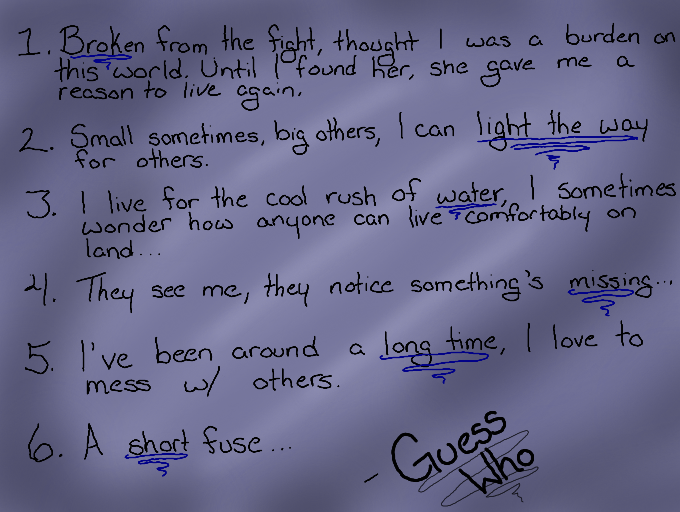 1. Broken from the fight, thought I was a burden on
this world. Until I found her, she gave me a
reason to live again.
2. Small sometimes, big others, I can light the way
for others.
3. I live for the cool rush of water, I sometimes
wonder how anyone can live comfortably on
land...
4. They see me, they notice something's missing...
5. I've been around a long time, I love to
mess w/ others.
6. A short fuse...
- Guess
Who